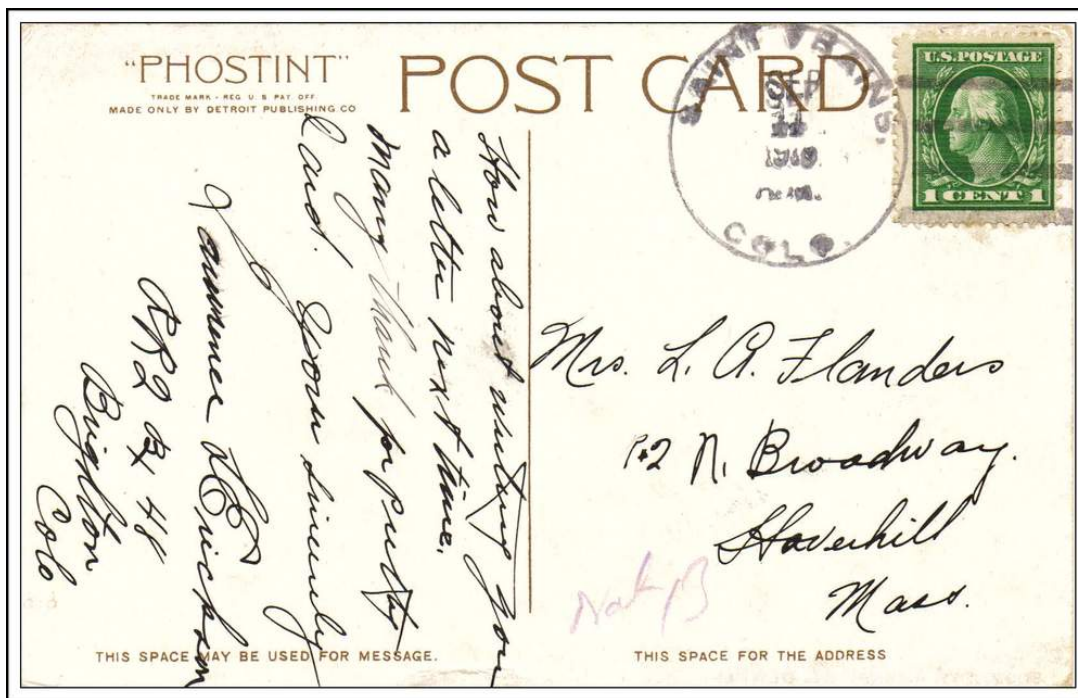 "PHOSTINT"
TRADE MARK - REG. U.S. PAT. OFF.
MADE ONLY BY DETROIT PUBLISHING CO
POST CARD
SAINT VRAINS,
SEP
COLO.
U.S. POSTAGE
1 CENT 1
How about writing you
a letter next time.
Many thank for pretty
Card.
Yours sincerely
Erickson
RR2 Bx 48
Brighton
Colo
Mrs. L. A. Flanders
R2 N. Broadway.
Haverhill
Mass.
THIS SPACE MAY BE USED FOR MESSAGE.
THIS SPACE FOR THE ADDRESS